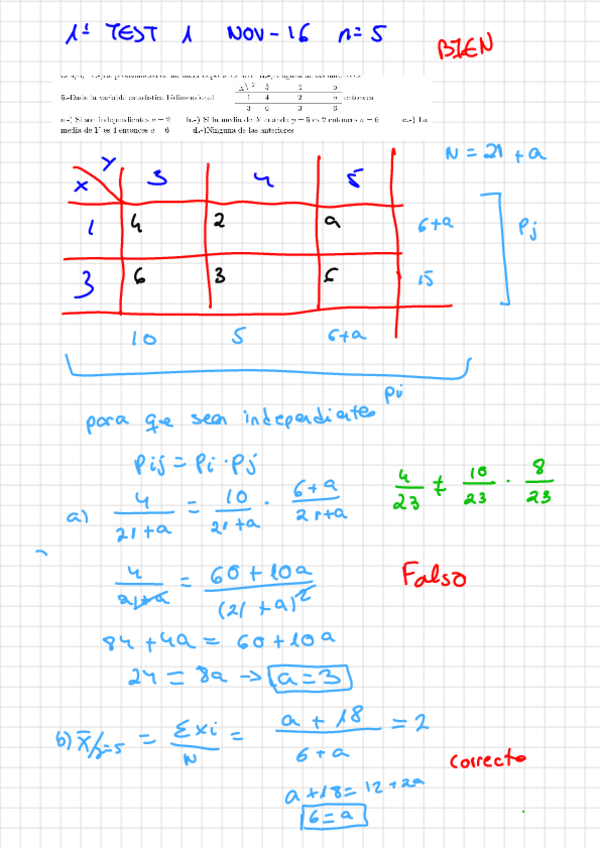 1º TEST 1 NOV-16 n=5
BIEN
X\Y 3 4 5
5.-Dada la variable estadística bidimensional 1 4 2 a entonces
3 6 3 6
a.-) Si son independientes a = 2 b.-) Si la media de X cuando y = 5 es 2 entonces a = 6 c.-) La
media de Y es 4 entonces a = 6 d.-)Ninguna de las anteriores
N = 21 + a
X Y 3 4 5
1 4 2 a 6+a
Pj
3 6 3 6 15
10 5 6+a
Pi
para que sean independientes
Pij = Pi · Pj
a) 4/21+a = 10/21+a · 6+a/21+a
4/23 ≠ 10/23 · 8/23
4/21+a = 60+10a/(21+a)²
Falso
84+4a = 60+10a
24 = 8a → a=3
b) x̄/y=5 = Σxi/N = a+18/6+a = 2
correcto
a+18=12+2a
6=a